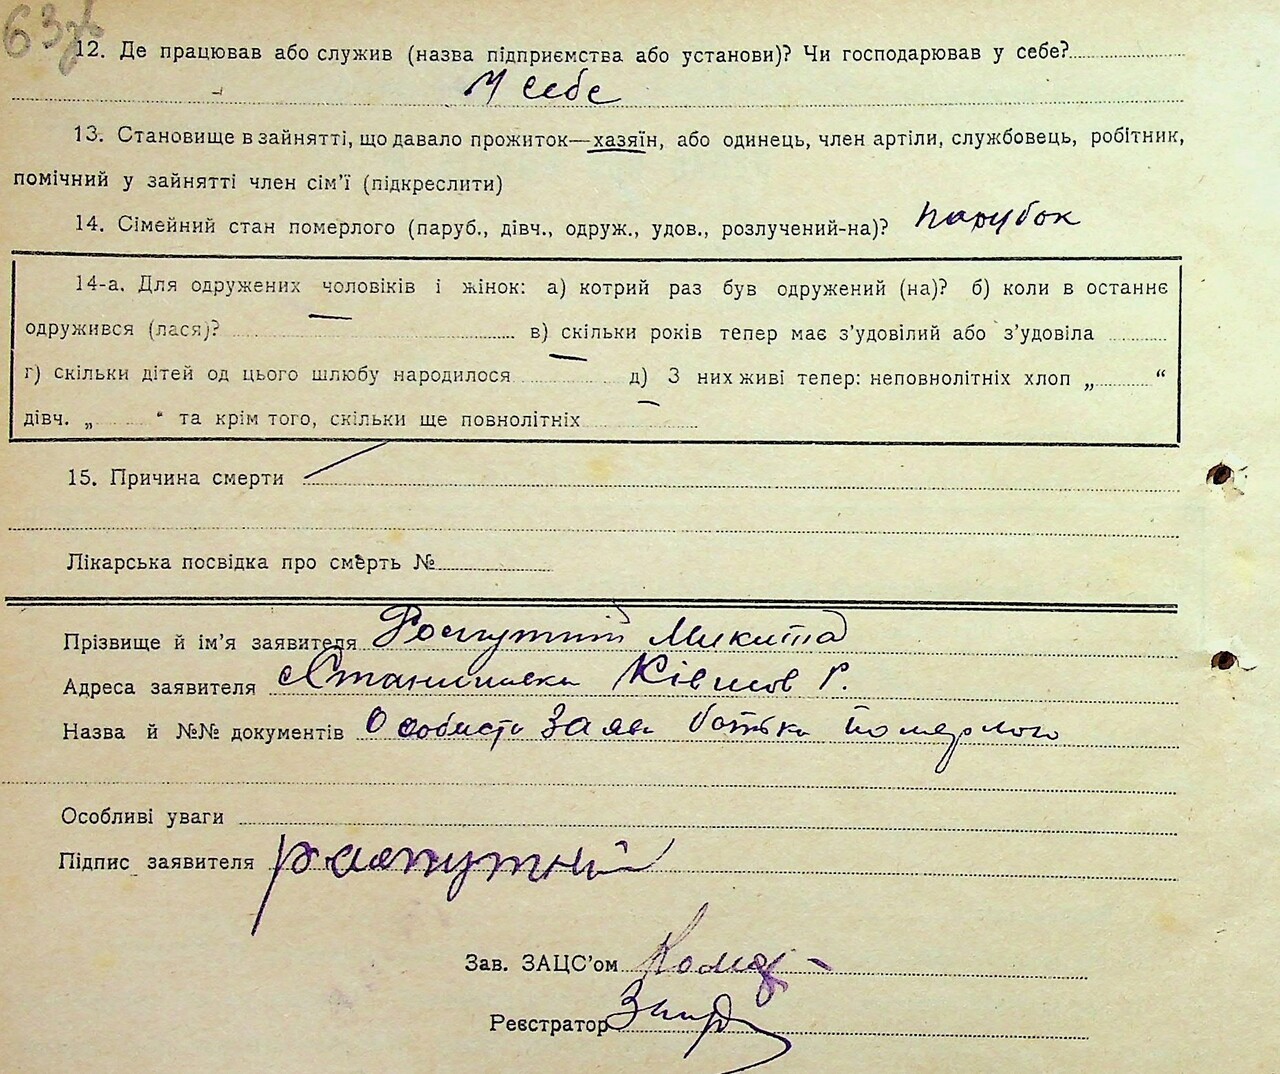 12. Де працював або служив (назва підприємства або установи)? Чи господарював у себе?
У себе
13. Становище в зайнятті, що давало прожиток—хазяїн, або одинець, член артіли, службовець, робітник,
помічний у зайнятті член сім’ї (підкреслити)
14. Сімейний стан померлого (паруб., дівч., одруж., удов., розлучений-на)? парубок
14-а. Для одружених чоловіків і жінок: а) котрий раз був одружений (на)? б) коли в останнє
одружився (лася)? в) скільки років тепер має з’удовілий або з’удовіла
г) скільки дітей од цього шлюбу народилося д) З них живі тепер: неповнолітніх хлоп „ “
дівч. „ “ та крім того, скільки ще повнолітніх
15. Причина смерти
Лікарська посвідка про смерть №
Прізвище й ім’я заявителя Роспутній Микита
Адреса заявителя
Назва й №№ документів Особиста заява батька померлого
Особливі уваги
Підпис заявителя распутній
Зав. ЗАЦС’ом
Реєстратор